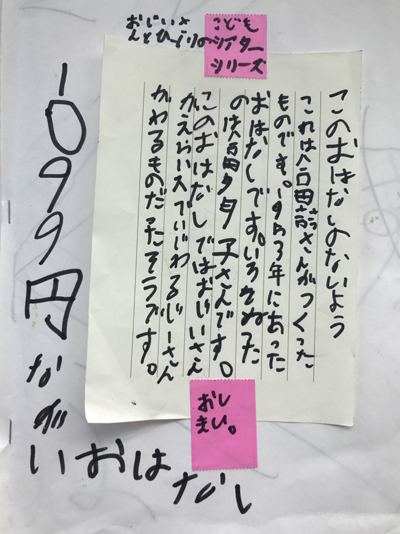 こども
シアター
シリーズ
おじいさ
このおはなしのないよう
これは さんがつくった
ものです。 年にあった
おはなしです。いろをぬった
のは 夕子さんです。
このおはなしではおじいさん
がえらい人でいじわるじーさん
がわるものだったそうです。
おし
まい。
1099円
なが
いおはなし